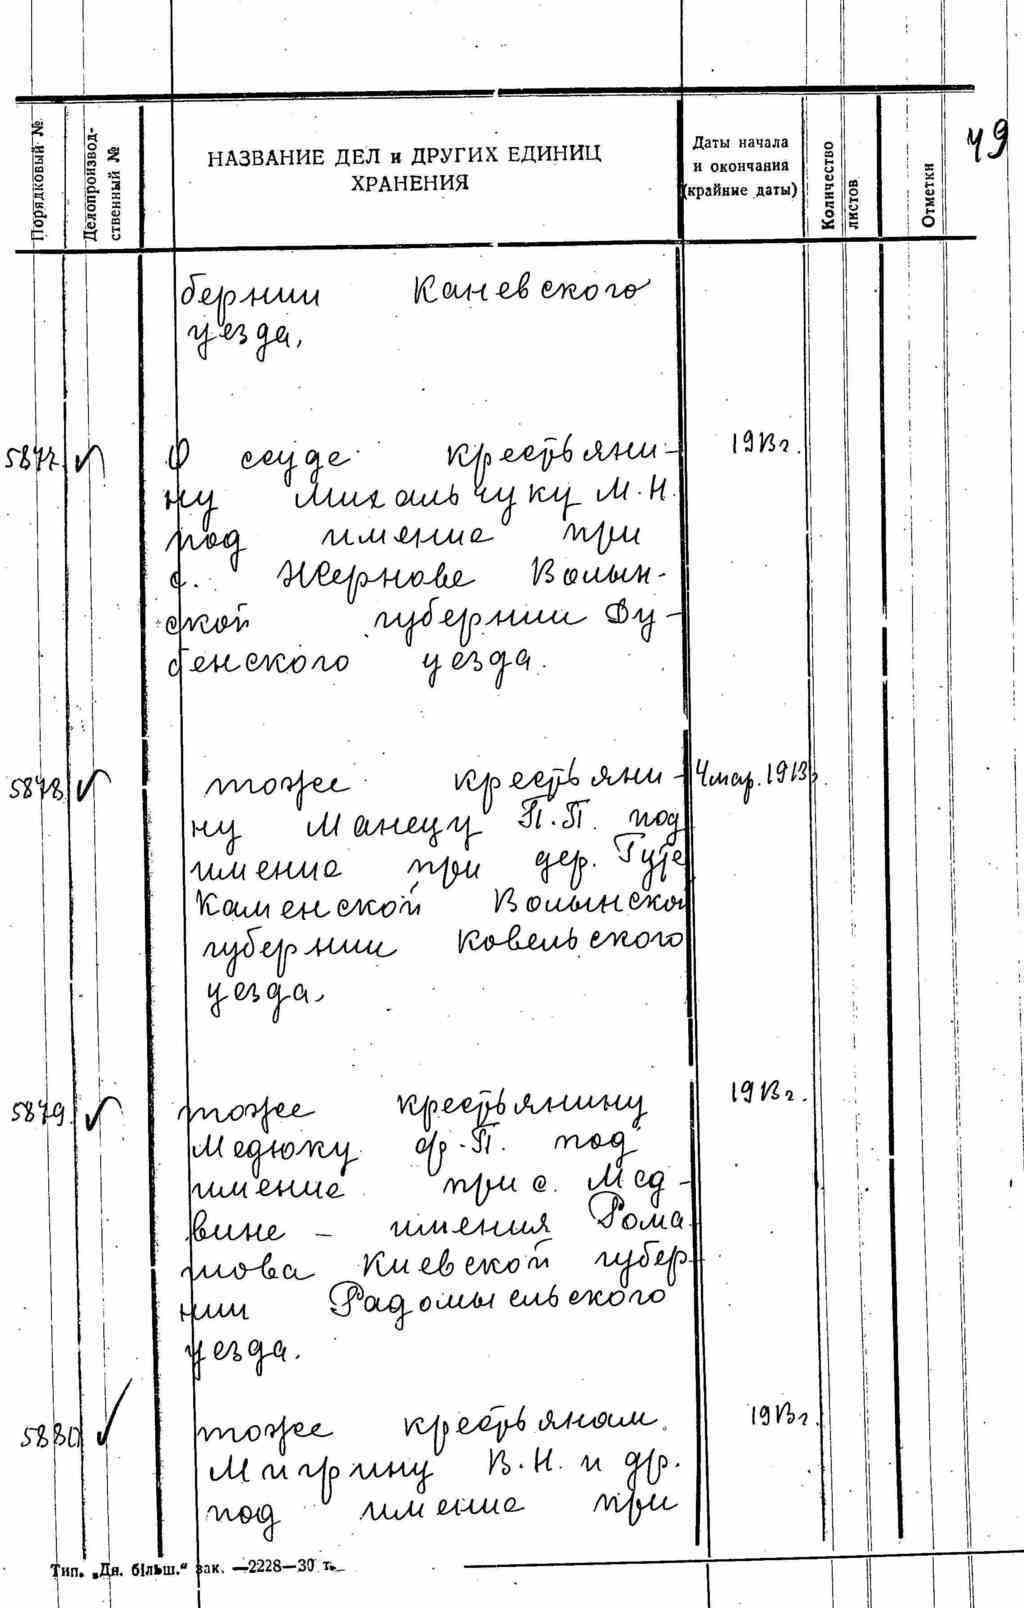 49
Порядковый №
Делопроизвод-
ственный №
НАЗВАНИЕ ДЕЛ и ДРУГИХ ЕДИНИЦ
ХРАНЕНИЯ
Даты начала
и окончания
(крайние даты)
Количество
листов
Отметки
бернии Каневского
уезда,
5877 О ссуде крестьяни- 1913г.
ну Михальчуку М.Н.
под имение при
с. Жернове Волын-
ской губернии Ду-
бенского уезда.
5878 тоже крестьяни- 4 мар. 1913г.
ну Манецу П.П. под
имение при дер. Гуте
Каменской Волынской
губернии Ковельского
уезда,
5879 тоже крестьянину 1913г.
Медюку Ф.П. под
имение при с. Мед-
вине - имения Рома
нова Киевской губер-
нии Радомысельского
уезда.
5880 тоже крестьянам 1913г.
Мигрину В.Н. и др.
под имение при
Тип. „Дн. більш.“ зак. —2228—30 т.